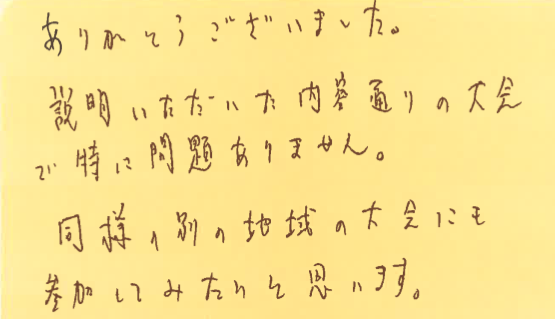 ありがとうございました。
説明いただいた内容通りの大会
で特に問題ありません。
同様の別の地域の大会にも
参加してみたいと思います。